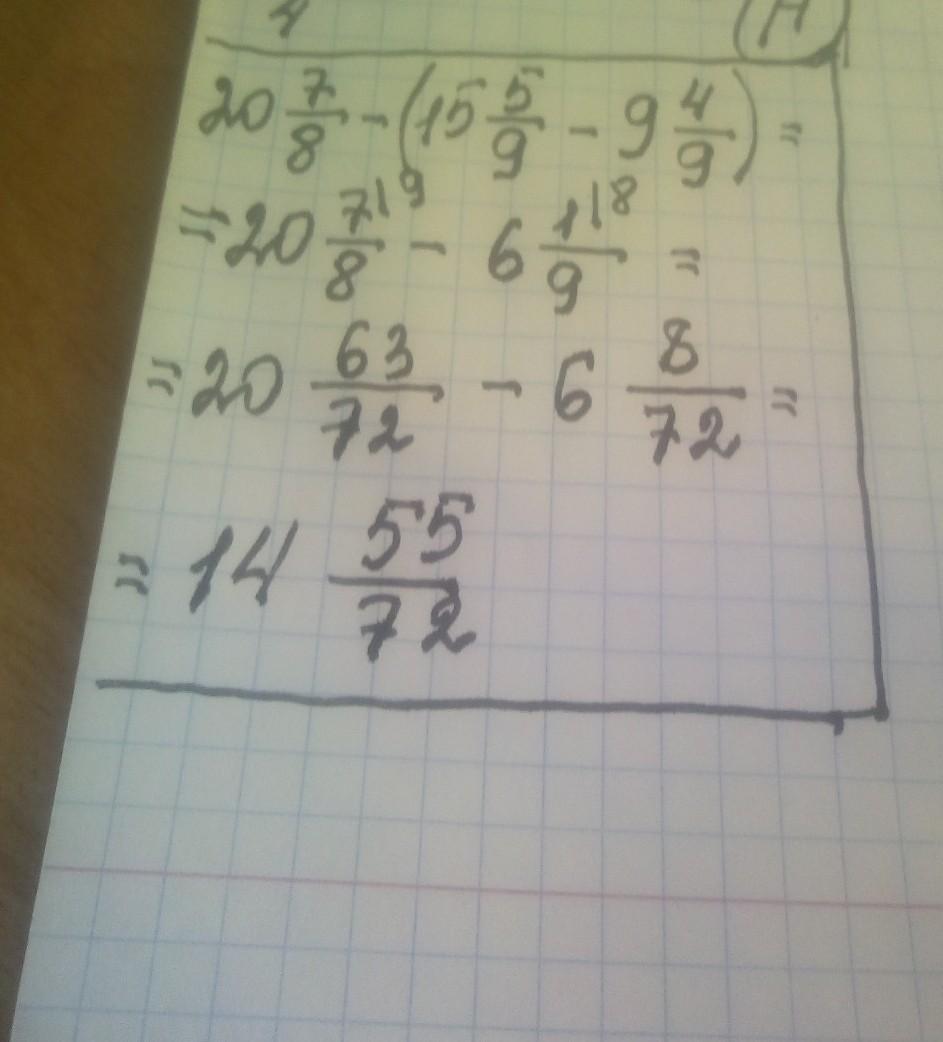 20 7/8 - (15 5/9 - 9 4/9) =
= 20 7/8 |9 - 6 1/9 |8 =
= 20 63/72 - 6 8/72 =
= 14 55/72